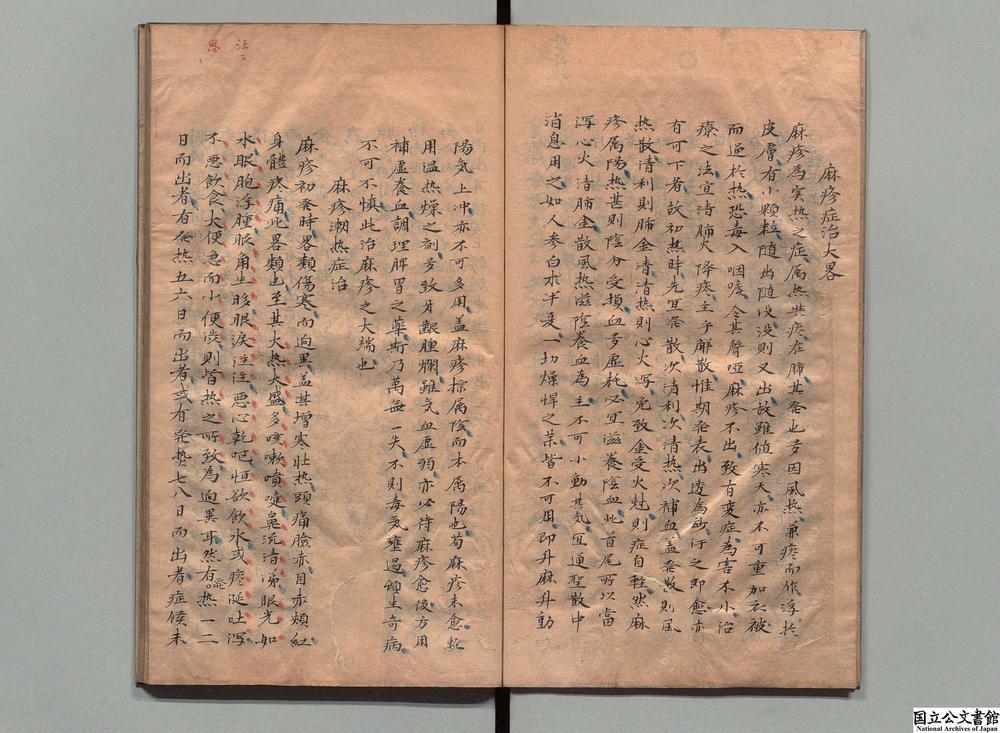 麻疹症治大畧
麻疹為实热之症属热与痰在肺其発也多因風热兼痰而作浮於
皮膚有小顆粒随出随没没則又出故雖値寒天亦不可重加衣被
而逼於热恐毒入咽喉令其聲啞麻疹不出致有変症為害不小治
療之法宜清肺火降痰主乎解散惟期発表出透為妙汗之即愈亦
有可下者故初热時先宜発散次清利次清热次補血盖発散則風
热散清利則肺金清清热則心火瀉免致金受火尅則症自軽然麻
疹属陽热甚則陰分受損血多虚耗必宜滋養陰血此首尾所以當
瀉心火清肺金散風热滋陰養血為主不可小動其気宜通聖散中
消息用之如人参白朮半夏一切燥悍之薬皆不可用即升麻升動
陽気上冲亦不可多用盖麻疹標属陰而本属陽也苟麻疹未愈輒
用温热燥之剤多致牙齦腫爛雖気血虚弱亦必待麻疹愈後方用
補虚養血調理脾胃之薬斯乃萬無一失不則毒気壅遏頓生奇病
不可不慎此治麻疹之大端也
麻疹潮热症治
麻疹初発時畧類傷寒而迥異盖其增寒壮热頭痛臉赤目赤頬紅
身體疼痛此畧類也至其火热大盛多咳嗽噴嚏鼻流清涕眼光如
水眼胞浮腫眼角生眵眼淚汪汪悪心乾呕恒欲飲水或痰涎吐瀉
不悪飲食大便急而小便渋則皆热之所致為迥異耳然有発热一二
日而出者有発热五六日而出者或有発热七八日而出者症候未
注
思
国立公文書館
National Archives of Japan